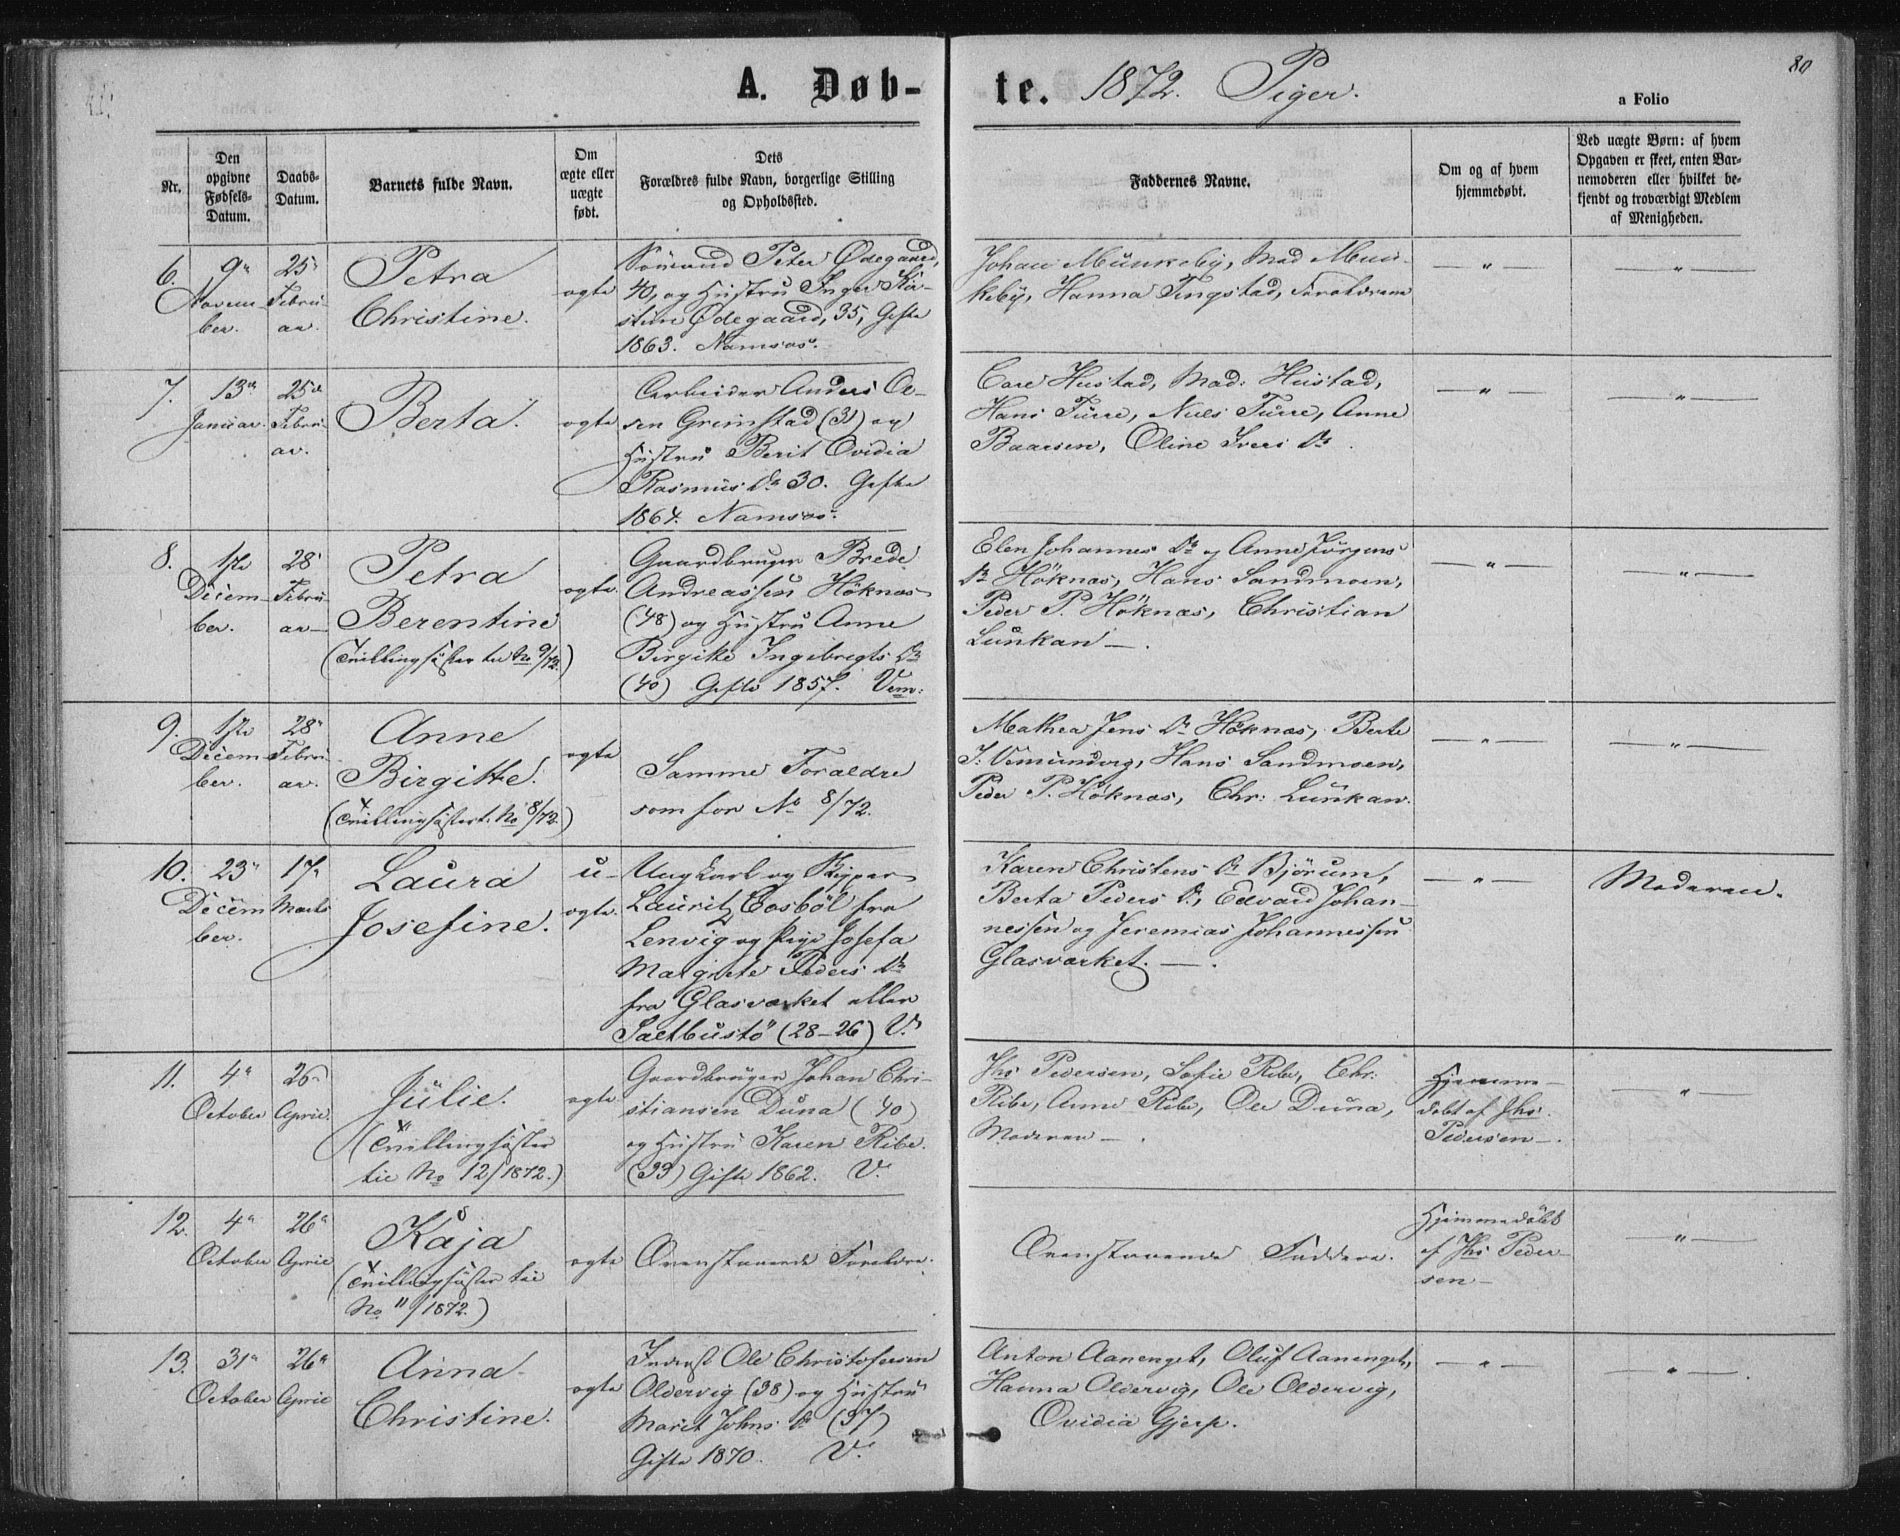 A. Døb- te. 1872. Piger.
80
a Folio
Nr.
Den opgivne Fødsels-Datum.
Daabs-Datum.
Barnets fulde Navn.
Om ægte eller uægte født.
Dets Forældres fulde Navn, borgerlige Stilling og Opholdssted.
Faddernes Navne.
Om og af hvem hjemmedøbt.
Ved uægte Børn: af hvem Opgaven er skeet, enten Barnemoderen eller hvilket bekjendt og troværdigt Medlem af Menigheden.
6. 9de Novem-
ber.
25de Febru-
ar.
Petra
Christine.
ægte
Sömand Peter Ødegaard,
40, og Hustru Inger Kir-
stine Ødegaard, 35, Gifte
1863. Namsos.
Johan Munkeby, Mad Mun-
keby, Hanna Tingstad, Forældrene
— " —
— " —
7. 13de
Januar.
25de
Febru-
ar.
Berta.
ægte
Arbeider Anders Ol-
sen Grimstad (31) og
Hustru Berit Ovidia
Rasmus Dr 30. Gifte
1864. Namsos.
Carl Hustad, Mad. Hustad,
Hans Furre, Niels Furre, Anne
Baarsen, Oline Ivers Dr.
— " —
— " —
8. 1ste
Decem-
ber.
28de
Febru-
ar
Petra
Berentine
(Tvillingsöster til No 9/72.)
ægte.
Gaardbruger Brede
Andreassen Höknæs
(48) og Hustru Anne
Birgitte Ingebregts Dr
(40) Gifte 1857. Vem:
Elen Johannes Dr og Anne Jörgens
Dr Höknæs, Hans Sandmoen,
Peder P. Höknæs, Christian
Lunkan —.
— " —
— " —
9. 1ste
Decem-
ber.
28de
Febru-
ar.
Anne
Birgitte.
(Tvillingsöster t. No 8/72.)
ægte
Samme Forældre
som for No 8/72.
Mathea Jens Dr Höknæs, Berte
J. Vemundvig, Hans Sandmoen,
Peder P. Höknæs, Chr. Lunkan.
— " —
— " —
10. 23de
Decem
ber.
17de
Marts
Laura
Josefine.
u-
ægte.
Ungkarl og Skipper
Lauritz Eosböl fra
Lenvig og Pige Josefa
Margrete Peders Dr
fra Glasværket eller
Saltbustö (28-26) V.
Karen Christens Dr Bjørum,
Berta Peders Dr, Edvard Johan-
nessen og Jeremias Johannessen
Glasværket. —.
— " —
Moderen.
11. 4de
October
26de
April.
Julie.
(Tvillingsöster
til No 12/1872.)
ægte.
Gaardbruger Johan Chri-
stiansen Duna (40)
og Hustru Karen Ribe.
(33) Gifte 1862. V.
Jhs Pedersen, Sofie Ribe, Chr.
Ribe, Anne Ribe, Ole Duna,
Moderen —.
Hjemme-
döbt af Jhs.
Pedersen —.
— " —
12. 4de
October
26de
April
Kaja
(Tvillingsöster til
No 11/1872.)
ægte
Ovenstaaende Forældre.
Ovenstaaende Faddere.
Hjemmedöbt
af Jhs Peder-
sen —
— " —
13. 31de
October
26de
April
Anna
Christine.
ægte
Inderst Ole Christofersen
Oldervig (38) og Hustru
Marit Johns Dr (37)
Gifte 1870. V.
Anton Aanenget, Oluf Aanenget,
Hanna Oldervig, Ole Oldervig,
Ovidia Gjerp.
— " —
— " —